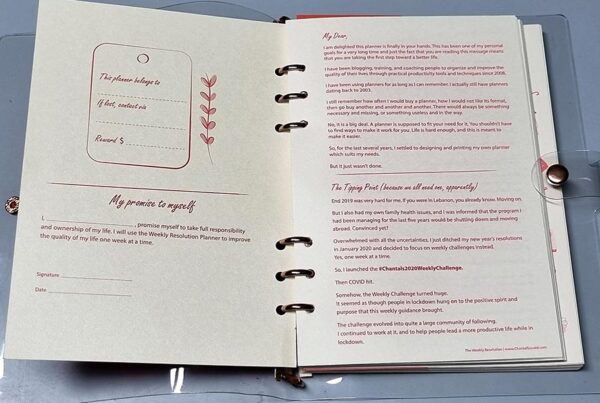 This planner belongs to
If lost, contact via
Reward $
My promise to myself
I, , promise myself to take full responsibility
and ownership of my life. I will use the Weekly Resolution Planner to improve
the quality of my life one week at a time.
Signature
Date
My Dear,
I am delighted this planner is finally in your hands. This has been one of my personal
goals for a very long time and just the fact that you are reading this message means
that you are taking the first step toward a better life.
I have been blogging, training, and coaching people to organize and improve the
quality of their lives through practical productivity tools and techniques since 2008.
I have been using planners for as long as I can remember. I actually still have planners
dating back to 2003.
I still remember how often I would buy a planner, how I would not like its format,
then go buy another and another and another. There would always be something
necessary and missing, or something useless and in the way.
No, it is a big deal. A planner is supposed to fit your need for it. You shouldn't have
to find ways to make it work for you. Life is hard enough, and this is meant to
make it easier.
So, for the last several years, I settled to designing and printing my own planner
which suits my needs.
But it just wasn't done.
The Tipping Point (because we all need one, apparently)
End 2019 was very hard for me. If you were in Lebanon, you already know. Moving on.
But I also had my own family health issues, and I was informed that the program I
had been managing for the last five years would be shutting down and moving
abroad. Convinced yet?
Overwhelmed with all the uncertainties, I just ditched my new year's resolutions
in January 2020 and decided to focus on weekly challenges instead.
Yes, one week at a time.
So, I launched the #Chantals2020WeeklyChallenge.
Then COVID hit.
Somehow, the Weekly Challenge turned huge.
It seemed as though people in lockdown hung on to the positive spirit and
purpose that this weekly guidance brought.
The challenge evolved into quite a large community of following.
I continued to work at it, and to help people lead a more productive life while in
lockdown.
The Weekly Resolution | www.ChantalSouaid.com